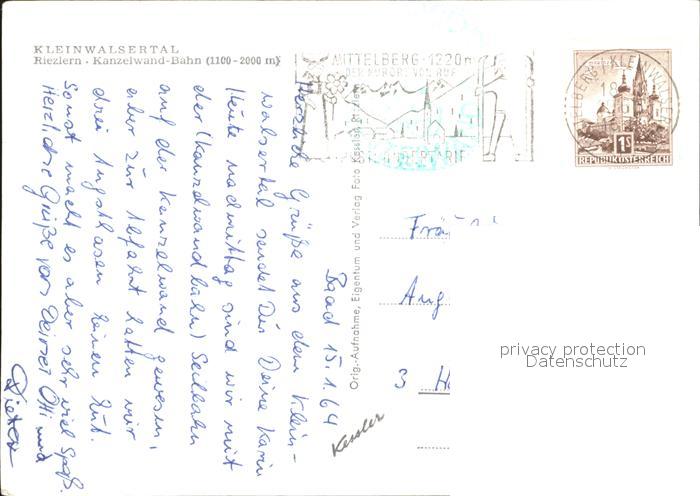 KLEINWALSERTAL
Riezlern · Kanzelwand-Bahn (1100-2000 m)
MITTELBERG · 1220 m
DER KURORT VON RUF
REPUBLIK ÖSTERREICH
1S
Baad 15.1.64
Herzliche Grüße aus dem Klein-
walsertal sendet Dir Deine Karin
Heute nachmittag sind wir mit
der (Kanzelwandbahn) Seilbahn
auf der Kanzelwand gewesen,
aber zur Abfahrt hatten wir
drei Angsthasen keinen Mut.
Sonst macht es aber sehr viel Spaß.
Herzliche Grüße von Deiner Otti und
Dieter
Kessler
Orig.-Aufnahme, Eigentum und Verlag Foto Kessler
Aug
3
privacy protection
Datenschutz